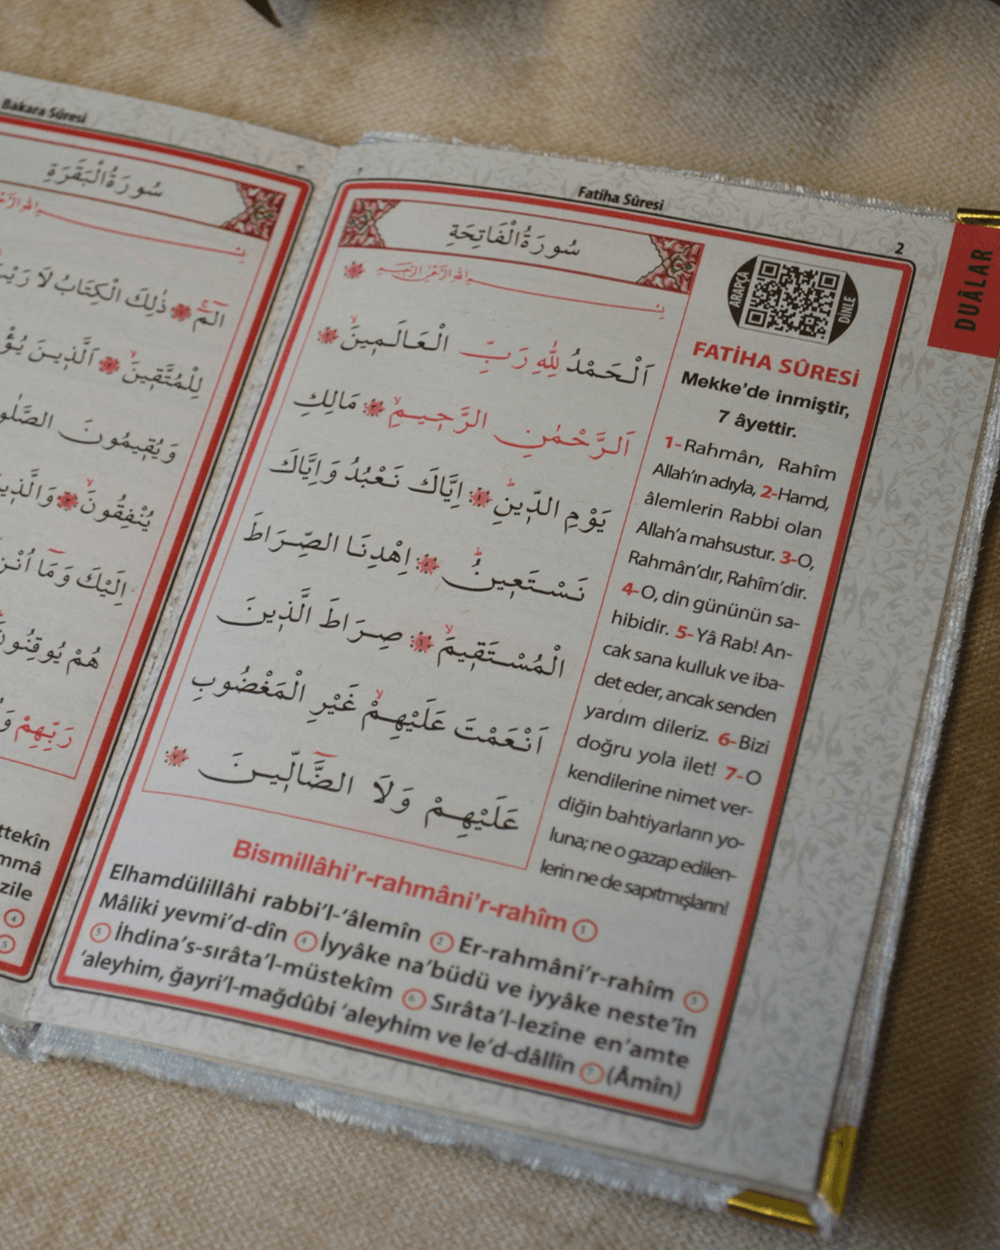 Bakara Sûresi
٣
سُورَةُ الْبَقَرَةِ
الٓمٓ ذٰلِكَ الْكِتَابُ لَا رَيْبَ
لِلْمُتَّقٖينَ اَلَّذٖينَ
وَيُقٖيمُونَ
يُنْفِقُونَ وَالَّذٖينَ
اِلَيْكَ وَمَٓا
هُمْ يُوقِنُونَ
رَبِّهِمْ
ttekîn
mmâ
zile
٢
Fatiha Sûresi
2
سُورَةُ الْفَاتِحَةِ
بِسْمِ اللّٰهِ الرَّحْمٰنِ الرَّحٖيمِ
اَلْحَمْدُ لِلّٰهِ رَبِّ الْعَالَمٖينَ
اَلرَّحْمٰنِ الرَّحٖيمِ مَالِكِ
يَوْمِ الدّٖينِ اِيَّاكَ نَعْبُدُ وَاِيَّاكَ
نَسْتَعٖينُ اِهْدِنَا الصِّرَاطَ
الْمُسْتَقٖيمَ صِرَاطَ الَّذٖينَ
اَنْعَمْتَ عَلَيْهِمْ غَيْرِ الْمَغْضُوبِ
عَلَيْهِمْ وَلَا الضَّٓالّٖينَ
ARAPÇA
DİNLE
FATİHA SÛRESİ
Mekke’de inmiştir,
7 âyettir.
1-Rahmân, Rahîm
Allah’ın adıyla, 2-Hamd,
âlemlerin Rabbi olan
Allah’a mahsustur. 3-O,
Rahmân’dır, Rahîm’dir.
4-O, din gününün sa-
hibidir. 5- Yâ Rab! An-
cak sana kulluk ve iba-
det eder, ancak senden
yardım dileriz. 6-Bizi
doğru yola ilet! 7-O
kendilerine nimet ver-
diğin bahtiyarların yo-
luna; ne o gazap edilen-
lerin ne de sapıtmışların!
Bismillâhi’r-rahmâni’r-rahîm 1
Elhamdülillâhi rabbi’l-‘âlemîn 2 Er-rahmâni’r-rahîm 3
Mâliki yevmi’d-dîn 4 İyyâke na’büdü ve iyyâke neste’în
5 İhdina’s-sırâta’l-müstekîm 6 Sırâta’l-lezîne en’amte
‘aleyhim, ğayri’l-mağdûbi ‘aleyhim ve le’d-dâllîn 7 (Âmîn)
DUÂLAR